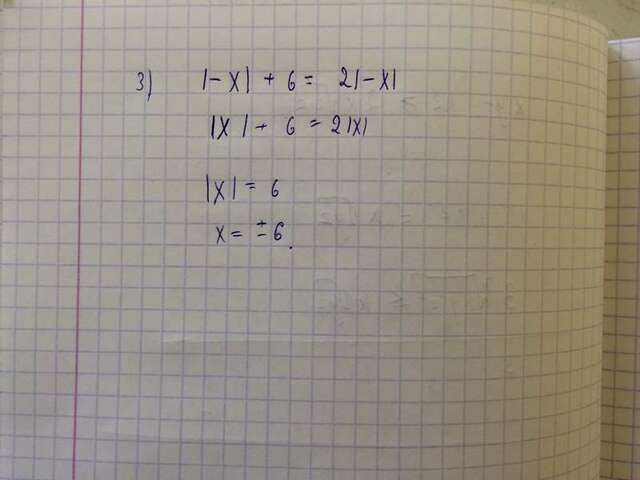 3) |-x| + 6 = 2|-x|
|x| + 6 = 2|x|
|x| = 6
x = ±6.